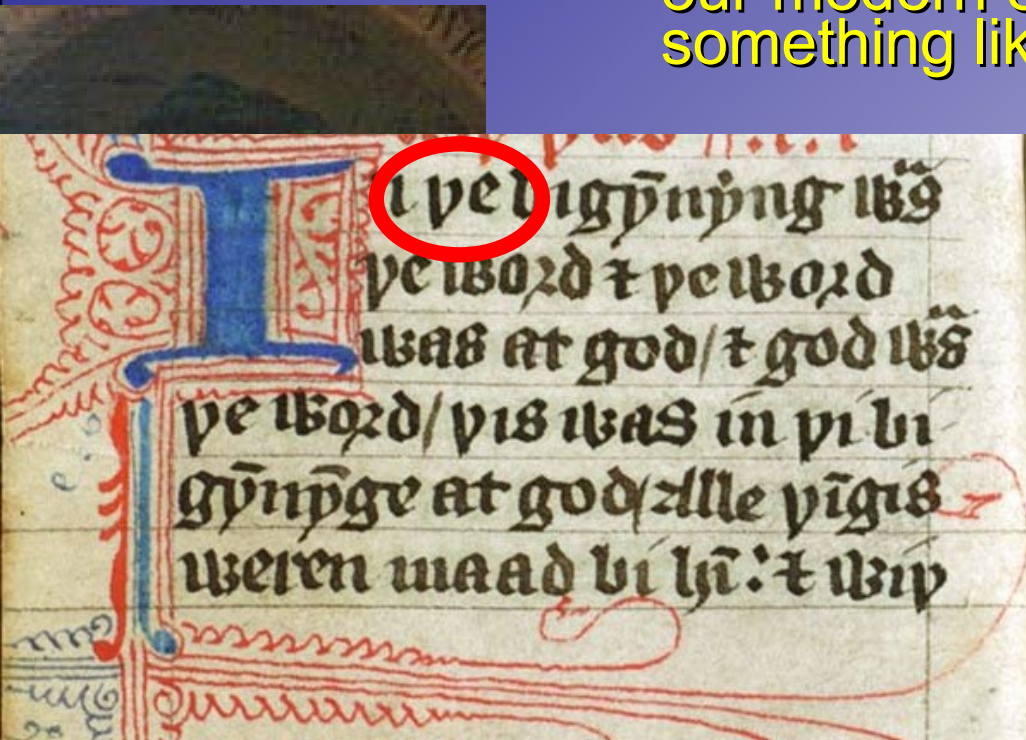 our modern
something lik
I n þe bigȳnyng wᵃs
þe word ⁊ þe word
was at god/ ⁊ god wᵃs
þe word/ þis was in þi bi
gȳnȳge at god/ Alle þīgis
weren maad bi hī: ⁊ wiþ